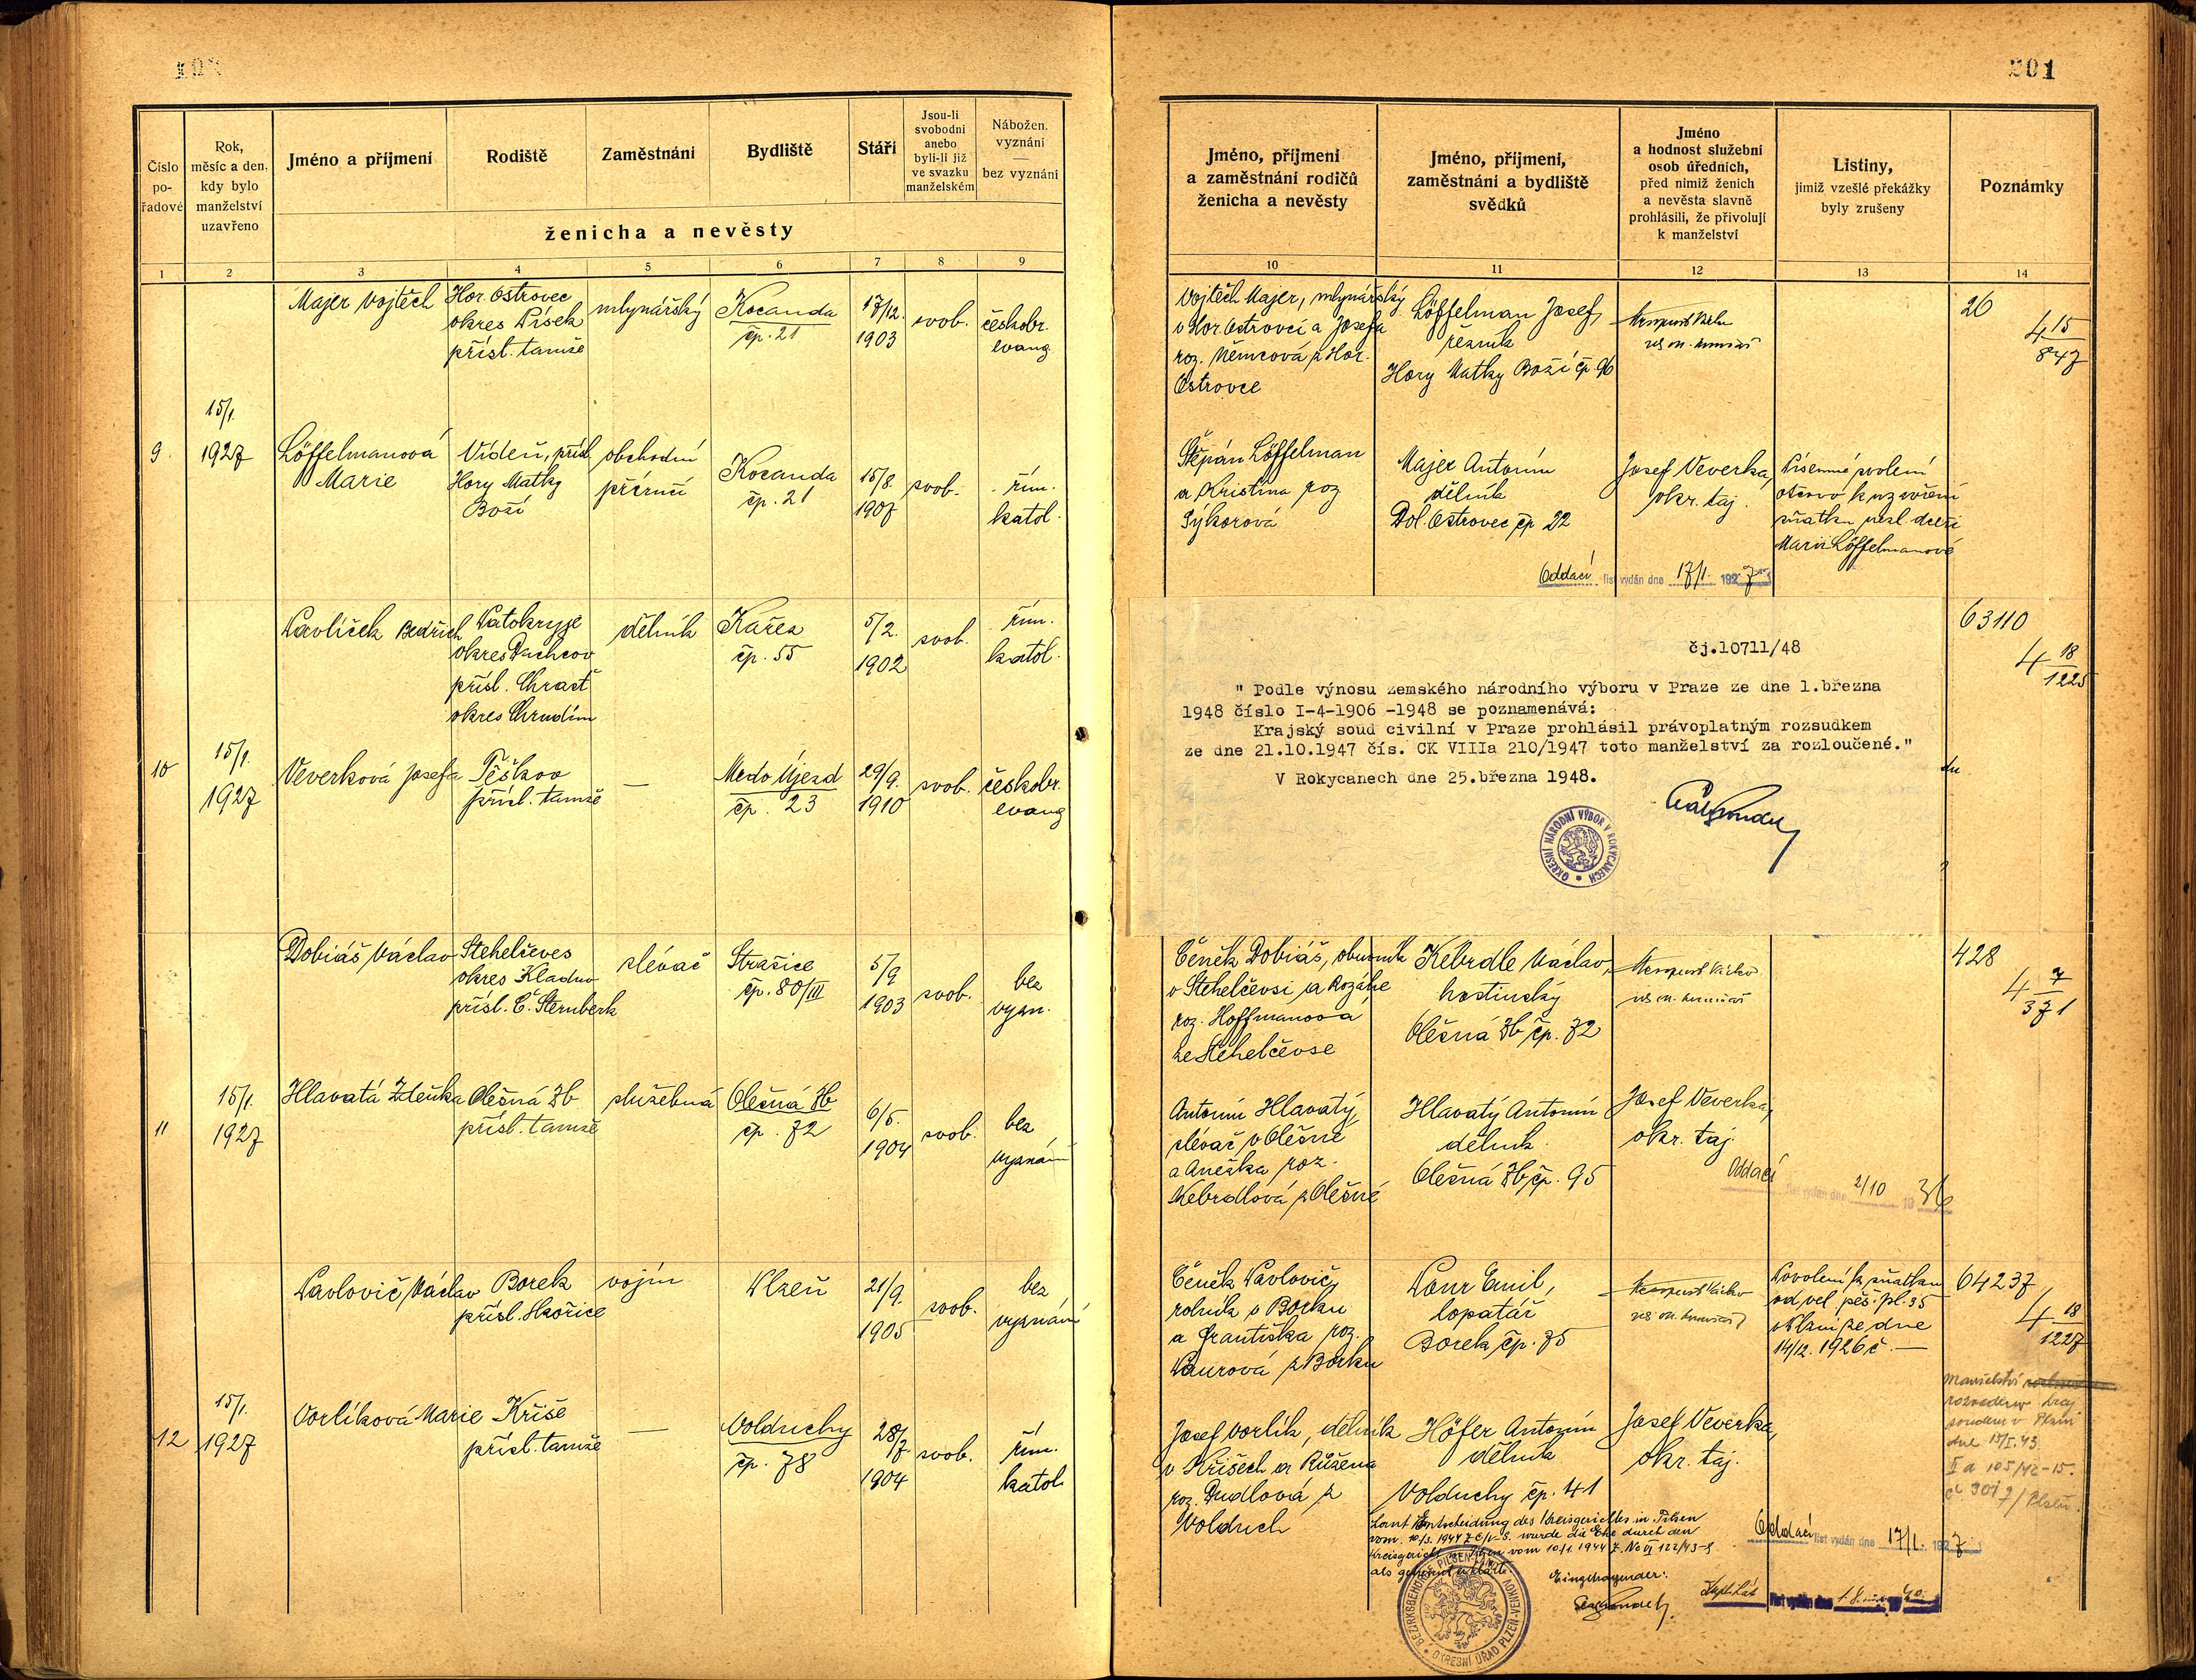 201
Číslo
po-
řadové
Rok,
měsíc a den,
kdy bylo
manželství
uzavřeno
Jméno a příjmení
Rodiště
Zaměstnání
Bydliště
Stáří
Jsou-li
svobodni
anebo
byli-li již
ve svazku
manželském
Nábožen.
vyznání
—
bez vyznání
ženicha a nevěsty
1 2 3 4 5 6 7 8 9
Majer Vojtěch
Hor. Ostrovec
okres Písek
přísl. tamže
mlynářský
Kocanda
čp. 21
17/12.
1903
svob.
českobr.
evang.
9.
15/1.
1927
Löffelmanová
Marie
Vídeň, přísl.
Hory Matky
Boží
obchodní
příručí
Kocanda
čp. 21
15/8.
1907
svob.
řím.
katol.
Pavlíček Bedřich
Patokryje
okres Duchcov
přísl. Chrasť
okres Chrudim
dělník
Kařez
čp. 55
5/2.
1902
svob.
řím.
katol.
10
15/1.
1927
Veverková Josefa
Těškov
přísl. tamže
—
Medo Újezd
čp. 23
29/9.
1910
svob.
českobr.
evang
Dobiáš Václav
Stehelčeves
okres Kladno
přísl. Č. Šternberk
slévač
Strašice
čp. 80/III
5/9
1903
svob.
bez
vyzn.
11
15/1.
1927
Hlavatá Zdeňka
Olešná Zb
přísl. tamže
služebná
Olešná Zb
čp. 72
6/5.
1904
svob.
bez
vyznání
Pavlovič Václav
Borek
přísl. Hořice
vojín
Plzeň
21/9.
1905
svob.
bez
vyznání
12
15/1.
1927
Vorlíková Marie
Kříše
přísl. tamže
—
Volduchy
čp. 78
28/7
1904
svob.
řím.
katol.
Jméno, příjmení
a zaměstnání rodičů
ženicha a nevěsty
Jméno, příjmení,
zaměstnání a bydliště
svědků
Jméno
a hodnost služební
osob úředních,
před nimiž ženich
a nevěsta slavně
prohlásili, že přivolují
k manželství
Listiny,
jimiž vzešlé překážky
byly zrušeny
Poznámky
10 11 12 13 14
Vojtěch Majer, mlynářský
v Hor. Ostrovci a Josefa
roz. Němcová z Hor.
Ostrovce
Löffelman Josef,
řezník
Hory Matky Boží čp. 96
26
4 15
847
Štěpán Löffelman
a Kristina roz.
Sýkorová
Majer Antonín
dělník
Dol. Ostrovec čp 22
Josef Veverka,
okr. taj.
Písemné svolení
otcovo k uzavření
sňatku nezl. dceři
Marii Löffelmanové
Oddací list vydán dne 17/1. 1927
čj.10711/48
" Podle výnosu zemského národního výboru v Praze ze dne 1.března
1948 číslo I-4-1906 -1948 se poznamenává:
Krajský soud civilní v Praze prohlásil právoplatným rozsudkem
ze dne 21.10.1947 čís. CK VIIIa 210/1947 toto manželství za rozloučené."
V Rokycanech dne 25.března 1948.
OKRESNÍ NÁRODNÍ VÝBOR V ROKYCANECH
63110
4 18
1225
Čeněk Dobiáš, obuvník
v Stehelčevsi a Rozálie
roz. Hoffmanová
ze Stehelčevse
Kebrdle Václav,
hostinský
Olešná Zb čp. 72
428
4 7
371
Antonín Hlavatý,
slévač v Olešné
a Anežka roz.
Kebrdlová z Olešné
Hlavatý Antonín
dělník.
Olešná Zb, čp. 95
Josef Veverka,
okr. taj.
Oddací list vydán dne 2/10 1936
Čeněk Pavlovič,
rolník v Borku
a Františka roz.
Laurová z Borku
Laur Emil,
lopatář
Borek čp. 75
Povolení k sňatku
od vel. pěš. pl. 35
v Plzni ze dne
14/12. 1926 č. —
64237
4 18
1227
Manželství
rozvedeno kraj.
soudem v Plzni
dne 15/I.43
Josef Vorlík, dělník
v Kříších a Růžena
roz. Dudlová z
Volduch
Höfer Antonín
dělník
Volduchy čp. 41
Josef Veverka,
okr. taj.
Laut Entscheidung des Kreisgerichtes in Pilsen
wurde die Ehe durch den
Kreisgericht
Eingetragender:
BEZIRKSBEHÖRDE PILSEN-LAND
OKRESNÍ ÚŘAD PLZEŇ-VENKOV
Oddací list vydán dne 17/1. 1927
Duplikát list vydán dne